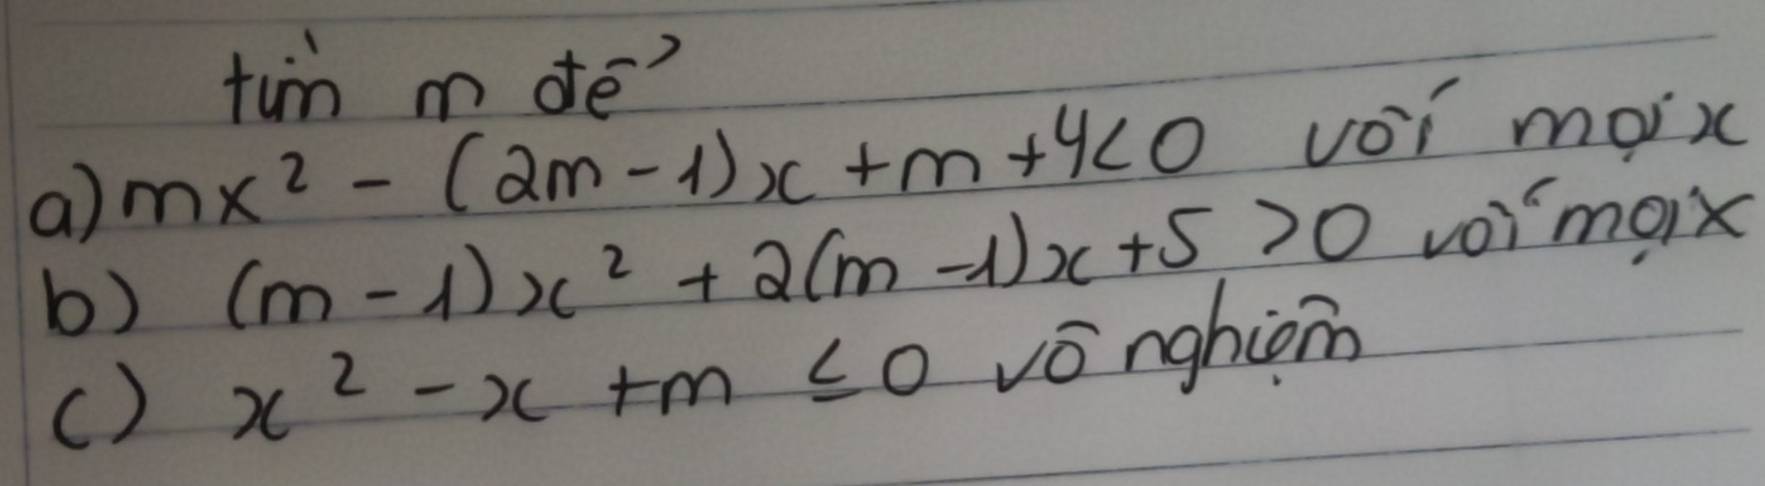 tìm m để
a) mx² - (2m - 1)x + m + 4 < 0 với mọi x
b) (m - 1)x² + 2(m - 1)x + 5 > 0 với mọi x
c) x² - x + m ≤ 0 vô nghiệm